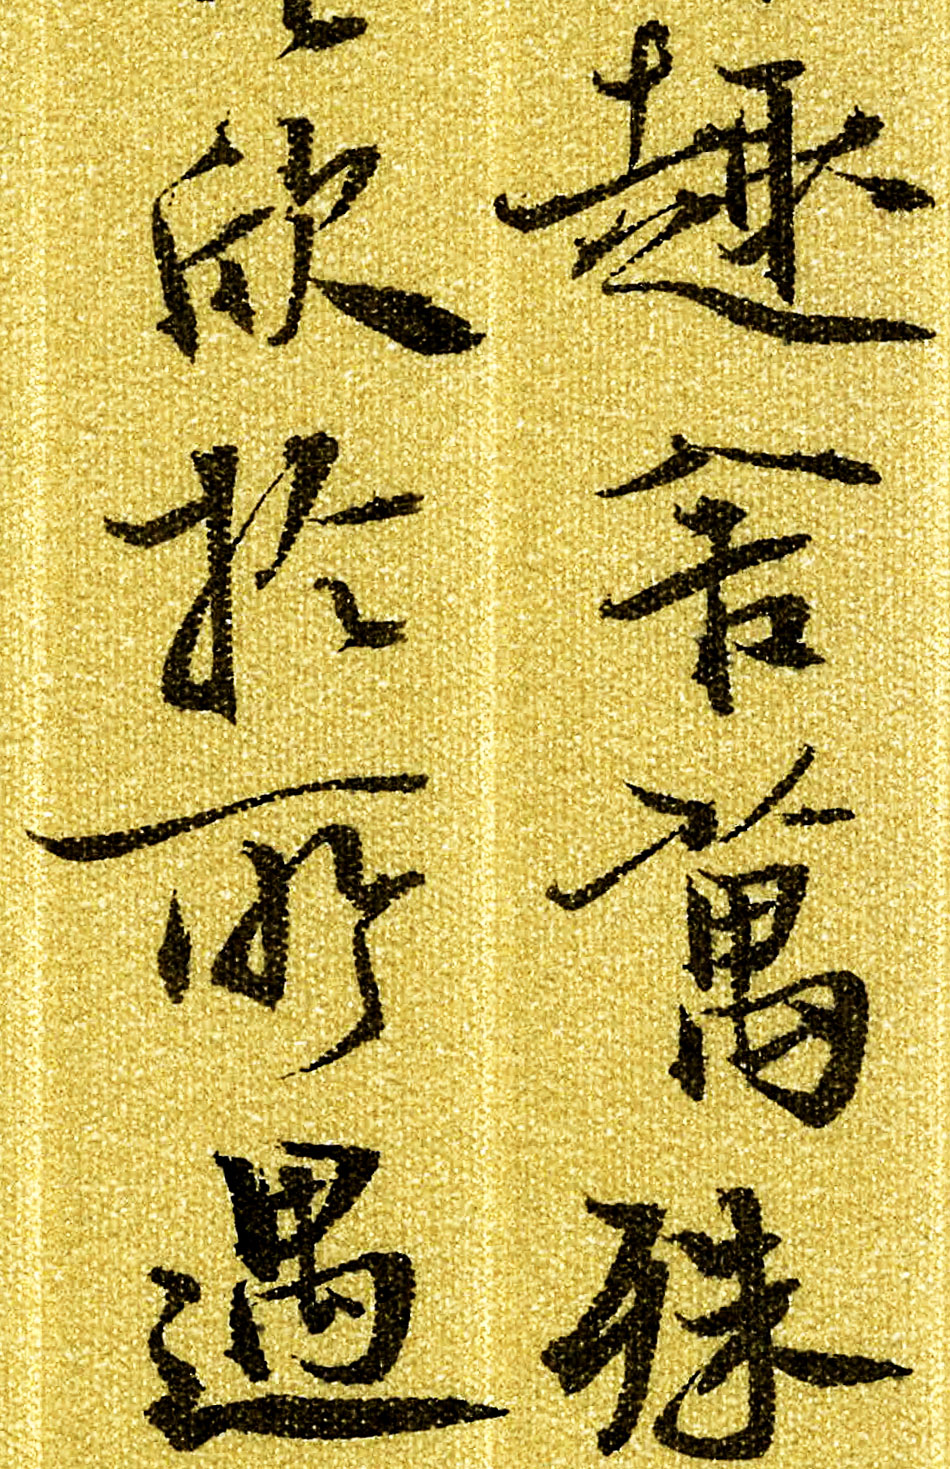 趣舍萬殊
欣於所遇